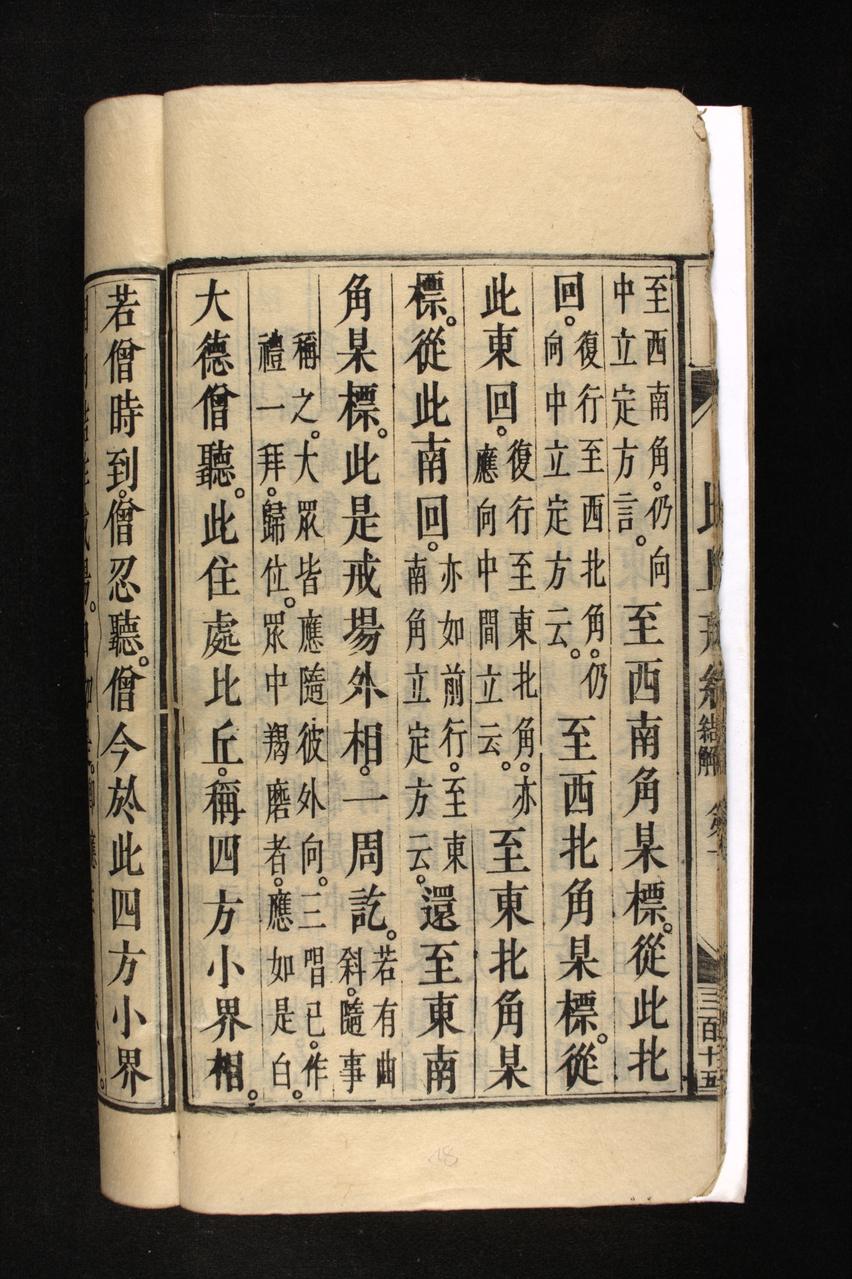 結解
三百十五
至西南角。仍向中立定方言。至西南角某標。從此北
回。復行至西北角。仍向中立定方云。至西北角某標。從
此東回。復行至東北角。亦應向中間立云。至東北角某
標。從此南回。亦如前行。至東南角立定方云。還至東南
角某標。此是戒場外相。一周訖。若有曲斜。隨事
稱之。大眾皆應隨彼外向。三唱已。作禮一拜。歸位。眾中羯磨者。應如是白。
大德僧聽。此住處比丘。稱四方小界相。
若僧時到。僧忍聽。僧今於此四方小界